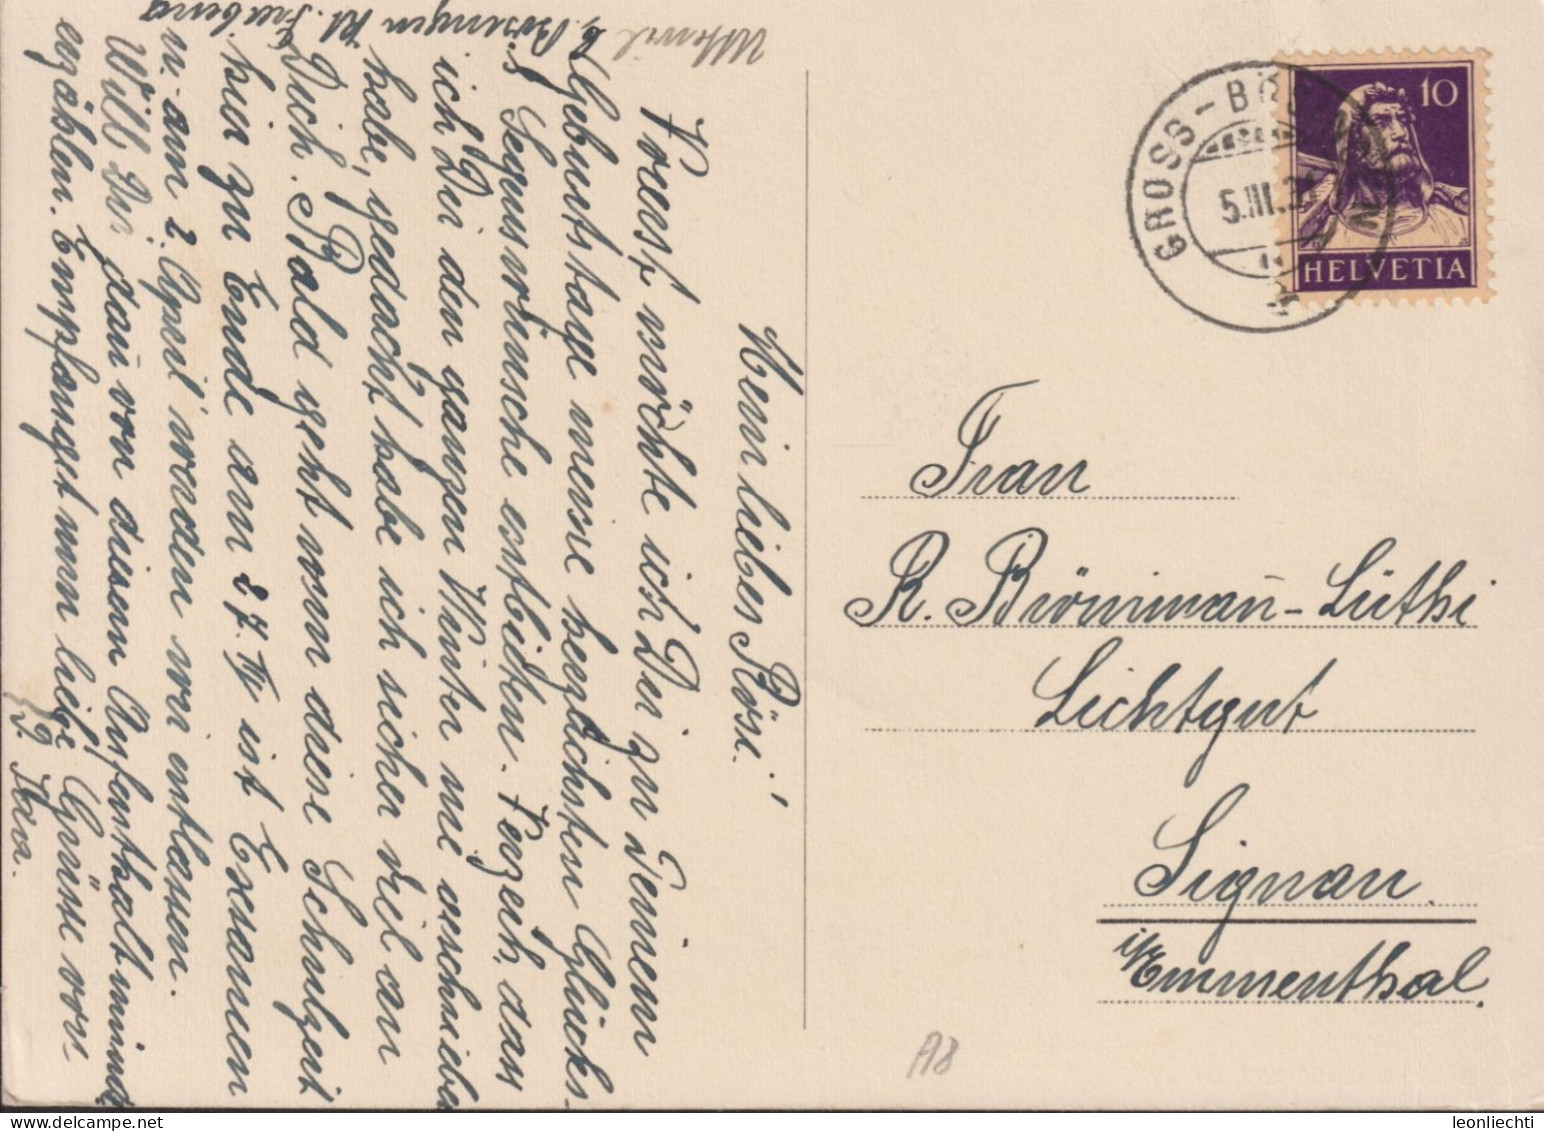 Uttewil b. Bösingen Kt. Freiburg
Mein liebes Rösi!
Voerst möchte ich Dir zu Deinem
Geburtstage meine herzlichsten Glücks-
& Segenswünsche entbieten. Verzeih, dass
ich Dir den ganzen Winter nie geschrieben
habe, gedacht habe ich sicher viel an
Dich. Bald geht nun diese Schulzeit
hier zu Ende am 27. III ist Examen
u. am 2. April werden wir entlassen.
Will Dir dann von diesem Aufenthalt mündl.
erzählen. Empfanget nun liebe Grüsse von
GROSS-BÖSINGEN
5.III.31
10
HELVETIA
Frau
R. Brönimann-Lüthi
Lichtgut
Signau.
i/Emmenthal.
A8
leonliechti